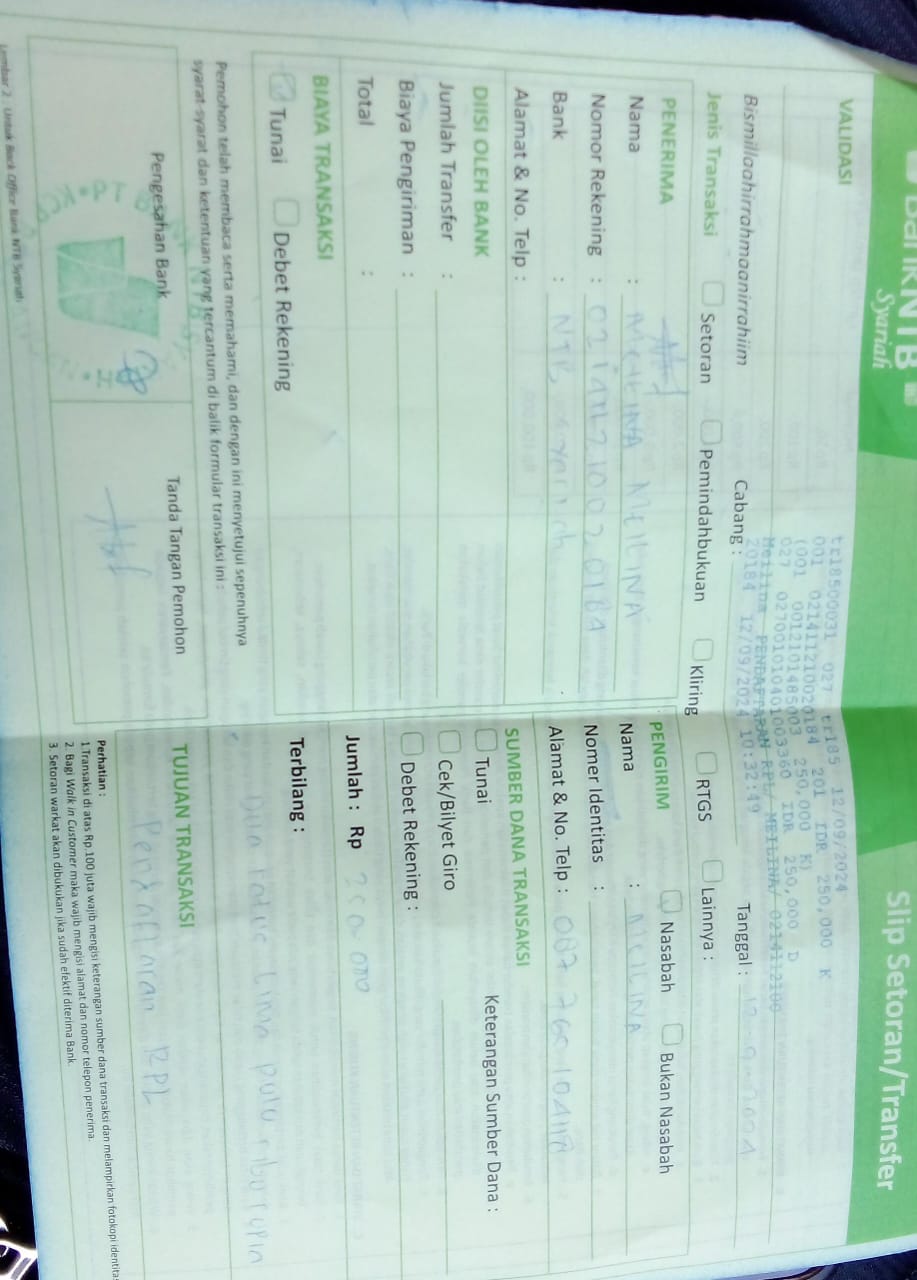 BankNTB
Syariah
Slip Setoran/Transfer
VALIDASI
tr18500031 027 tr185 12/09/2024
001 02141121002 0184 201 IDR 250,000 K
(001 0012101485003 250,000 K)
027 027001010401003360 IDR 250,000 D
Meilina PENDAFTARAN RPL/ MEILINA/ 0214112100
20184 12/09/2024 10:32:49
Bismillaahirrahmaanirrahiim
Cabang :
Tanggal : 12-9-2024
Jenis Transaksi
Setoran
Pemindahbukuan
Kliring
RTGS
Lainnya :
PENERIMA
Nama : MEILINA
Nomor Rekening :
Bank : NTB Syariah
Alamat & No. Telp :
PENGIRIM
Nasabah
Bukan Nasabah
Nama : MEILINA
Nomer Identitas :
Alamat & No. Telp :
DIISI OLEH BANK
Jumlah Transfer :
Biaya Pengiriman :
Total :
SUMBER DANA TRANSAKSI
Keterangan Sumber Dana :
Tunai
Cek/Bilyet Giro
Debet Rekening :
BIAYA TRANSAKSI
Tunai
Debet Rekening
Jumlah : Rp 250.000
Terbilang : Dua ratus lima pulu ribu rupia
Pemohon telah membaca serta memahami, dan dengan ini menyetujui sepenuhnya
syarat-syarat dan ketentuan yang tercantum di balik formular transaksi ini :
Pengesahan Bank
Tanda Tangan Pemohon
TUJUAN TRANSAKSI
Pendaftaran RPL
Perhatian :
1.Transaksi di atas Rp.100 juta wajib mengisi keterangan sumber dana transaksi dan melampirkan fotokopi identitas
2. Bagi Walk in Customer maka wajib mengisi alamat dan nomor telepon penerima.
3. Setoran warkat akan dibukukan jika sudah efektif diterima Bank.
Lembar 2 : Untuk Back Office Bank NTB Syariah